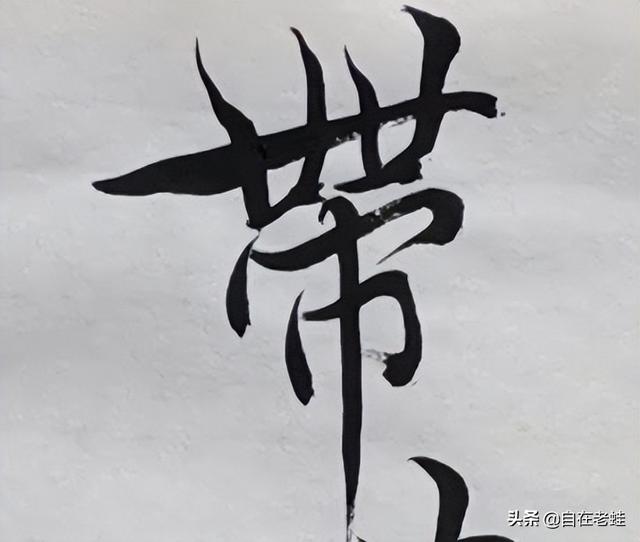 帶
头条 @自在老蛙